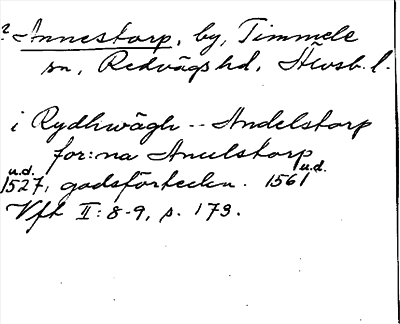 ? Annestorp, by, Timmele
sn, Redvägs hd, Älvsb. l.
i Rydhwägh -- Andelstorp
for:na Anulstorp
u.d. u.d.
1527, godsförteckn. 1561
Vft II: 8-9, s. 173.